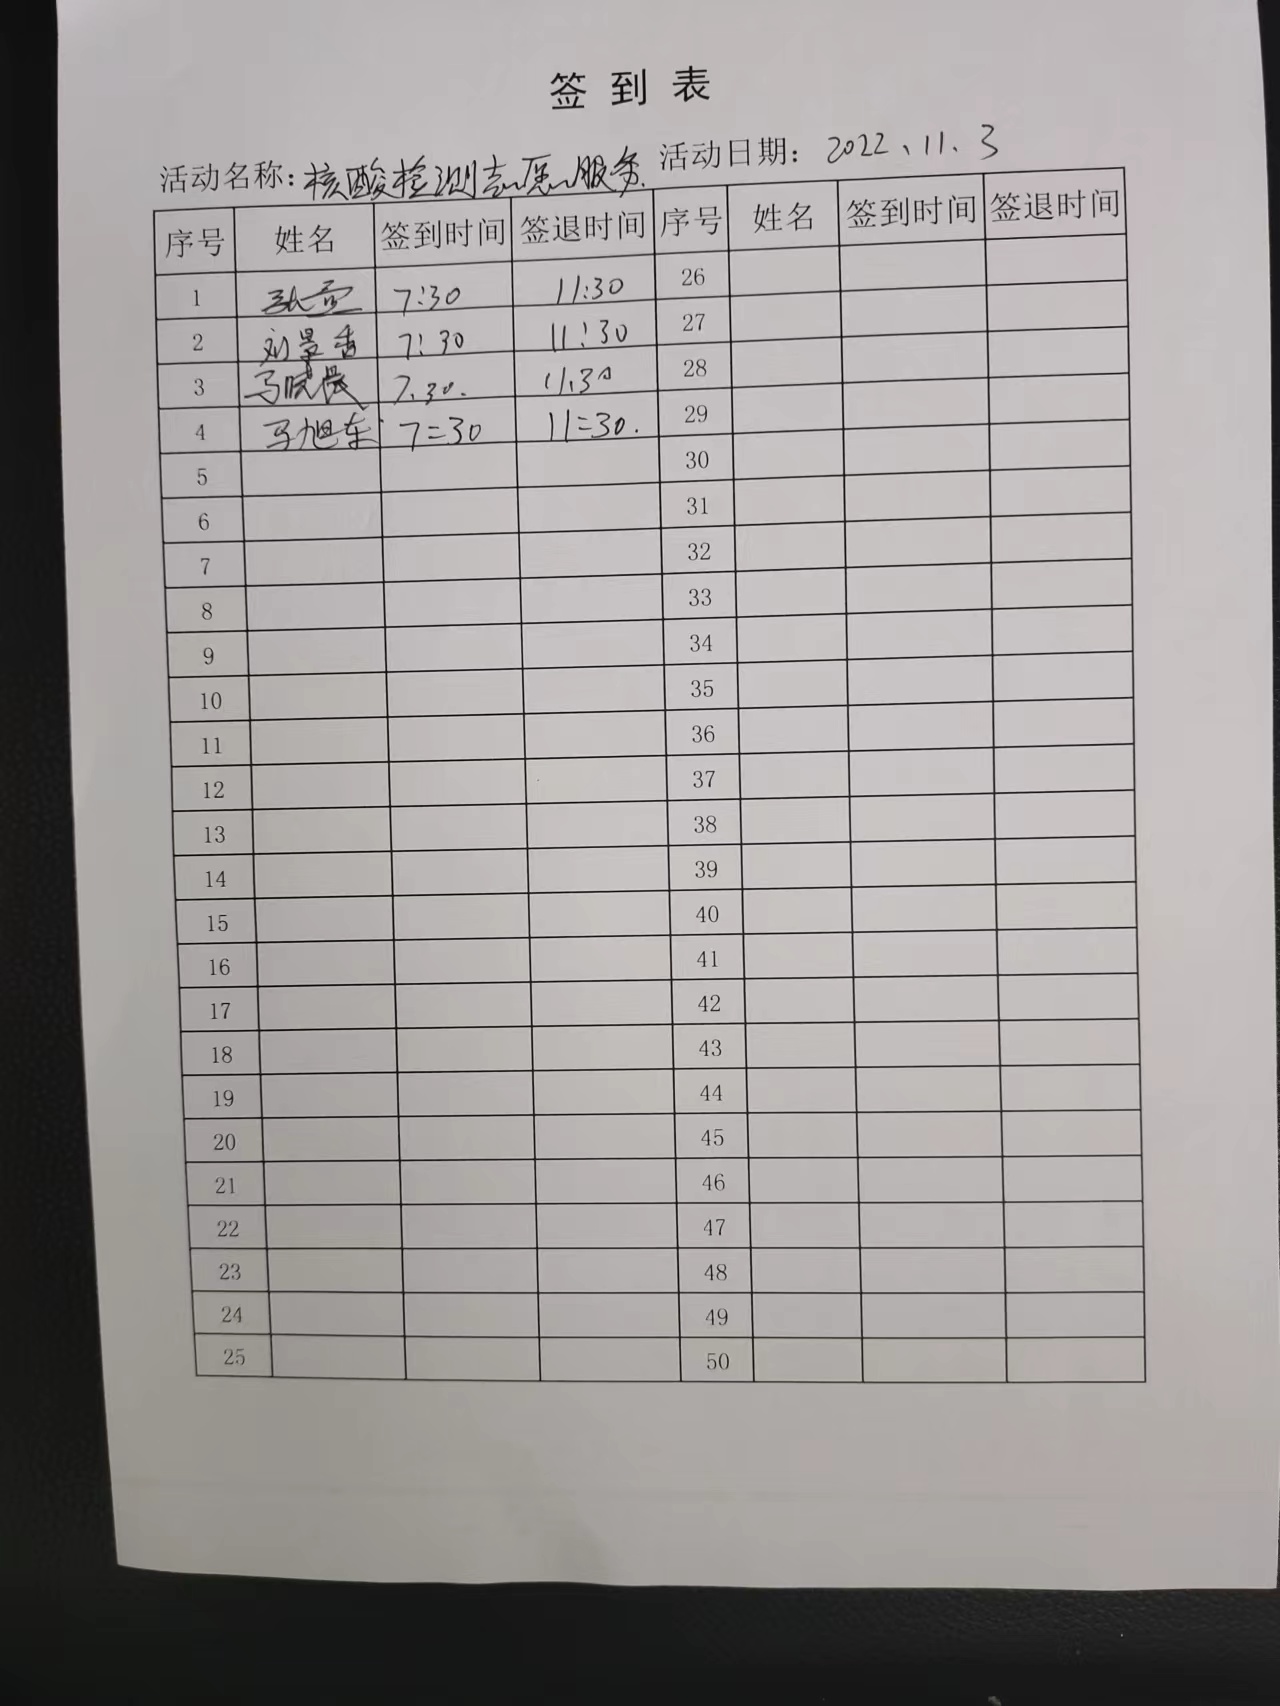 签到表
活动名称:核酸检测志愿服务 活动日期: 2022、11、3
序号 姓名 签到时间 签退时间 序号 姓名 签到时间 签退时间
1 7:30 11:30 26
2 刘景香 7:30 11:30 27
3 马晓晨 7.30. 11.30 28
4 马旭东 7=30 11=30. 29
5 30
6 31
7 32
8 33
9 34
10 35
11 36
12 37
13 38
14 39
15 40
16 41
17 42
18 43
19 44
20 45
21 46
22 47
23 48
24 49
25 50